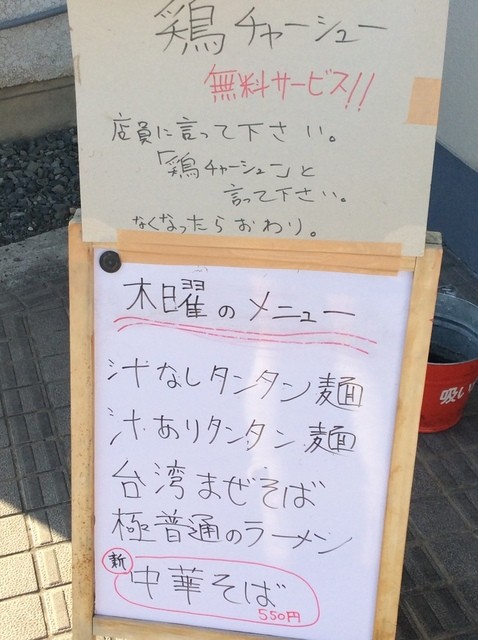 鶏チャーシュー
無料サービス!!
店員に言って下さい。
「鶏チャーシュー」と
言って下さい。
なくなったらおわり。
木曜のメニュー
汁なしタンタン麺
汁ありタンタン麺
台湾まぜそば
極普通のラーメン
新 中華そば
550円
吸い